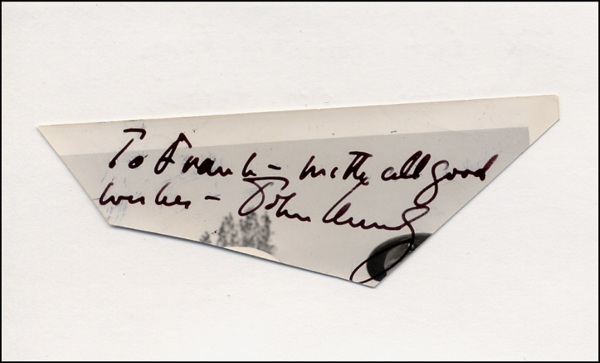 To Frank – with all good
wishes – John